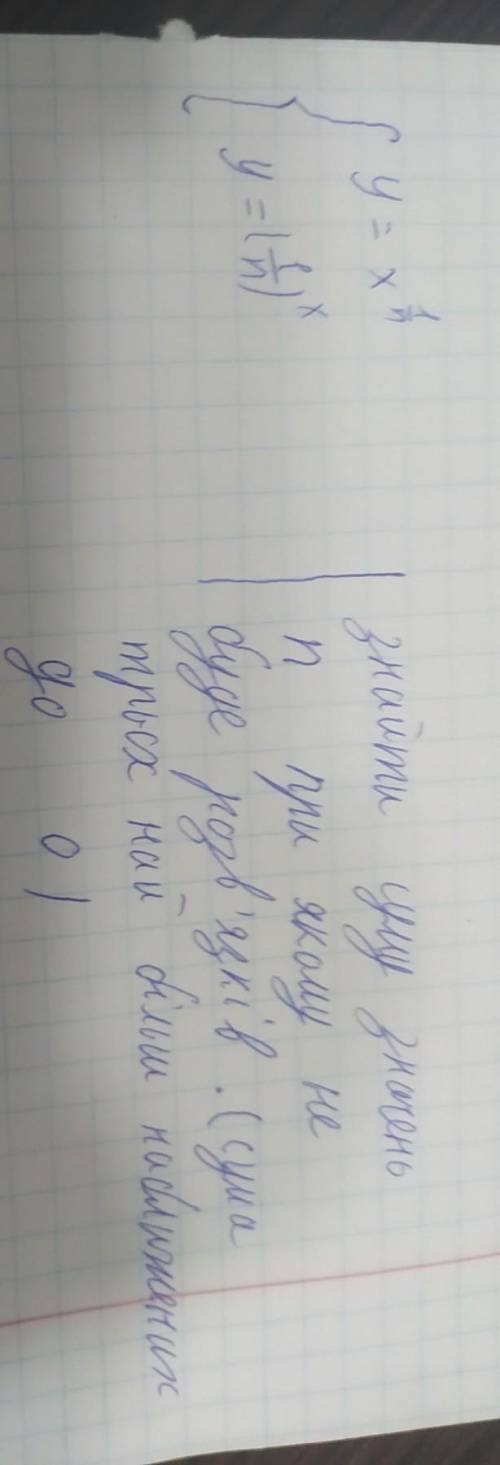 { y = x^(1/n)
y = (1/n)^x
знайти суму значень
n при якому не
буде розв'язків. (сума
трьох най - більш наближених
до 0)